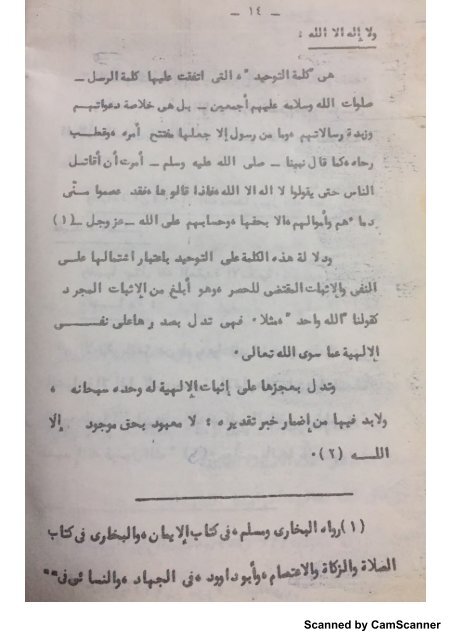 - ١٤ -
ولا إله الا الله :
هى "كلمة التوحيد" ، التى اتفقت عليها كلمة الرسل -
صلوات الله وسلامه عليهم أجمعين - بل هى خلاصة دعواتهم
وزبدة رسالاتهم ، وما من رسول إلا جعلها مفتتح أمره ، وقطب
رحاه ، كما قال نبينا - صلى الله عليه وسلم - أمرت أن أقاتل
الناس حتى يقولوا لا اله الا الله ، فاذا قالوها ، فقد عصموا منّى
دماءهم وأموالهم ، الا بحقها ، وحسابهم على الله - عز وجل - (١)
ودلالة هذه الكلمة على التوحيد باعتبار اشتمالها على
النفى والإثبات المقتضى للحصر ، وهو أبلغ من الإثبات المجرد
كقولنا "الله واحد" ، مثلا ، فهى تدل بصدرها على نفى
الإلهية عما سوى الله تعالى .
وتدل بعجزها على إثبات الإلهية له وحده سبحانه ،
ولابد فيها من إضمار خبر تقديره : لا معبود بحق موجود إلا
اللـه (٢) .
(١) رواه البخارى ومسلم ، فى كتاب الإيمان ، والبخارى فى كتاب
الصلاة والزكاة والاعتصام ، وأبو داوود ، فى الجهاد ، والنسائى فى ==
Scanned by CamScanner